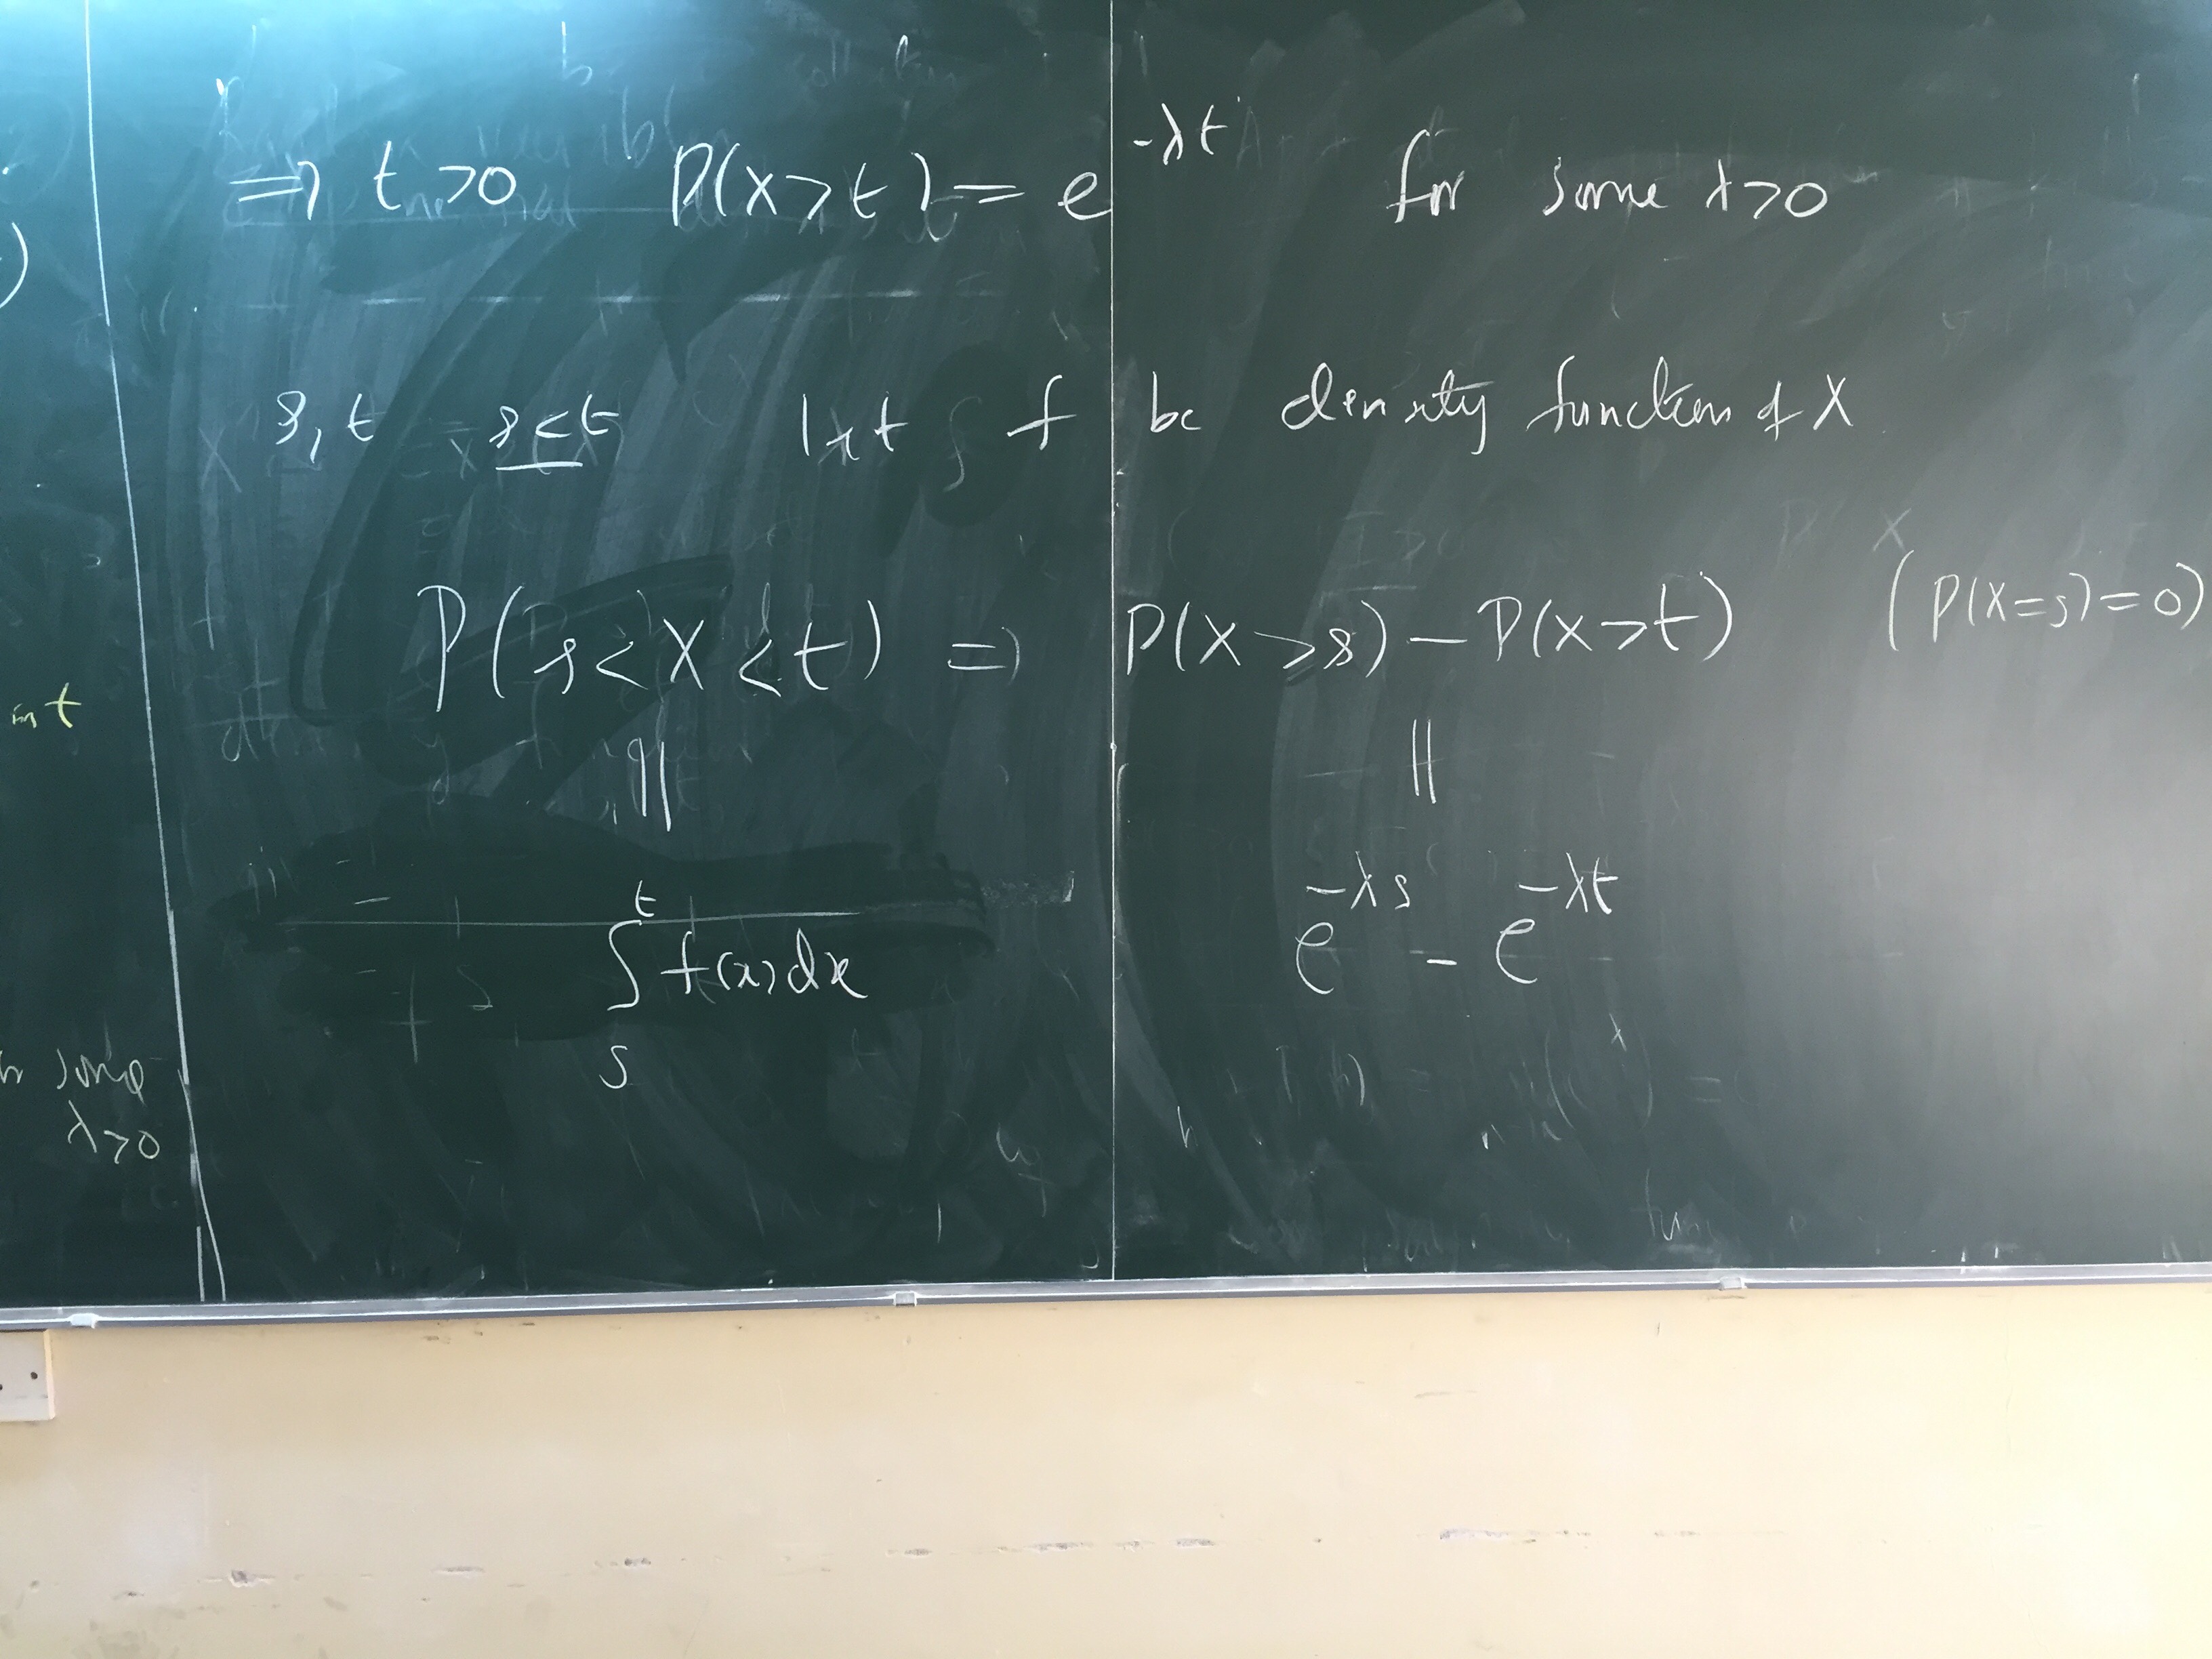 => t > 0 P(X > t) = e^{-λt} for some λ > 0
s, t s < t let f be density function of X
P(s < X < t) => P(X > s) - P(X > t) (P(X = s) = 0)
|| ||
∫_s^t f(x) dx e^{-λs} - e^{-λt}
int
some
λ > 0